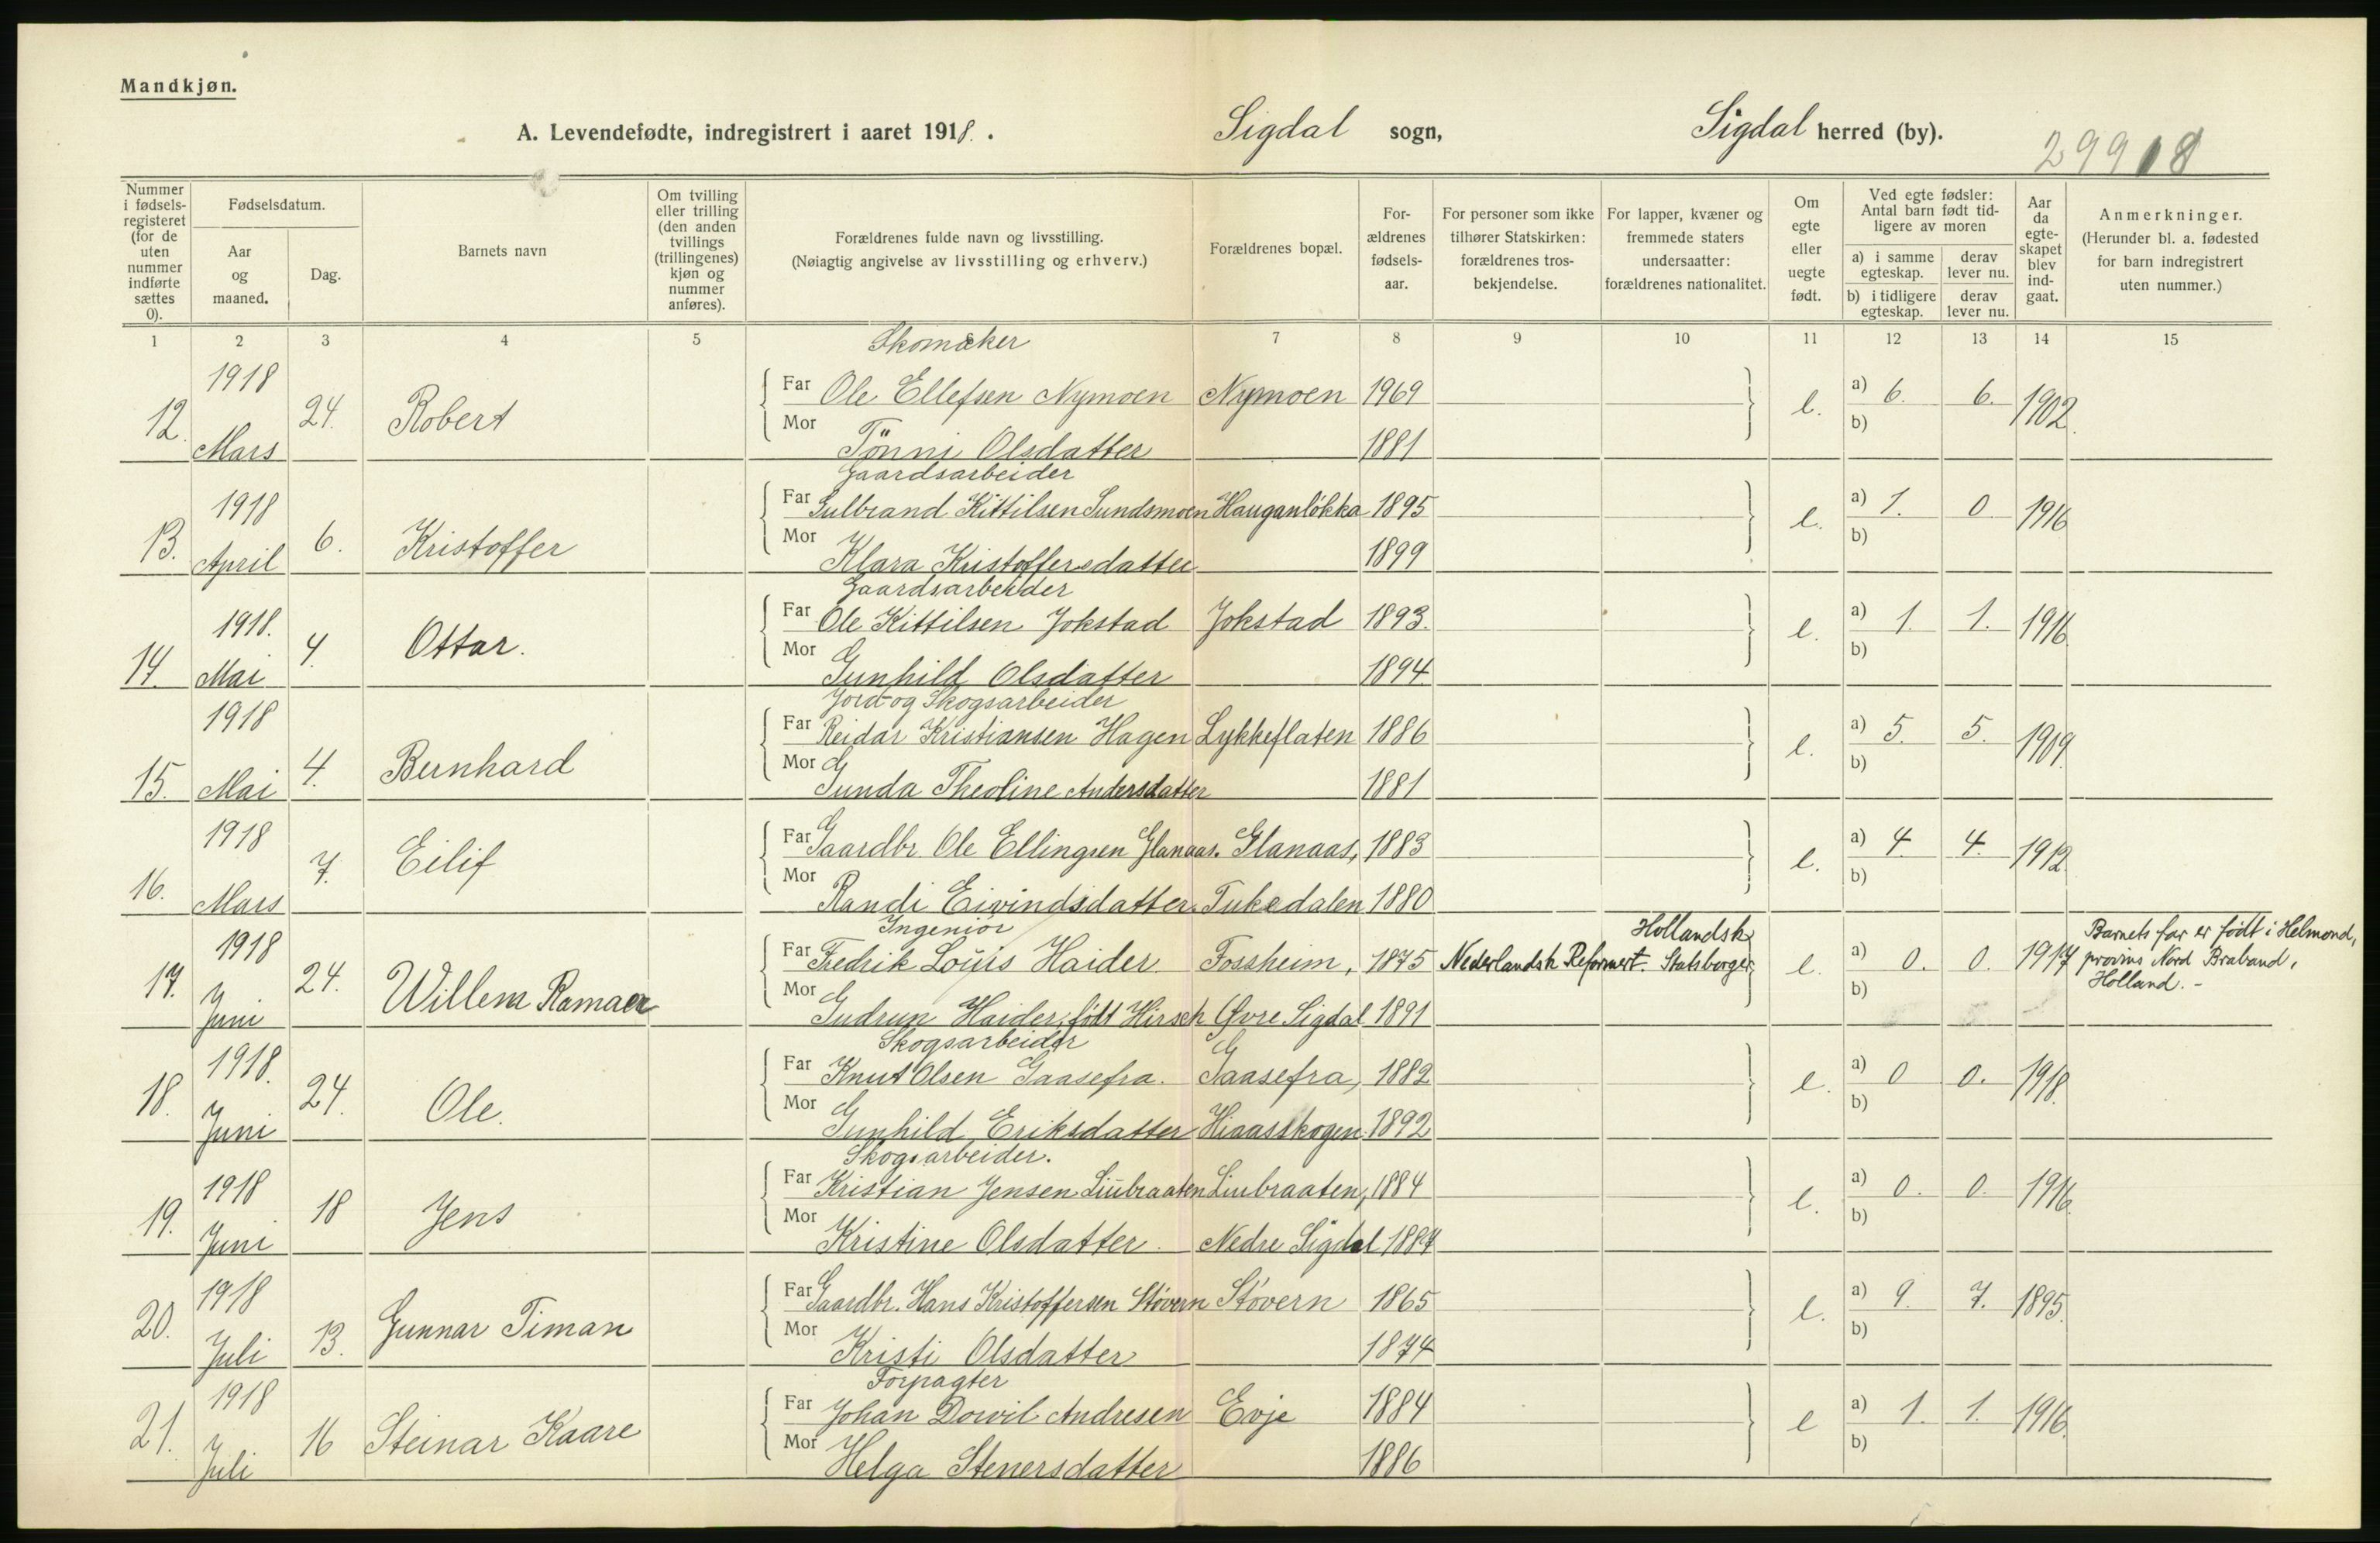 Mandkjøn.
A. Levendefødte, indregistrert i aaret 1918. . Sigdal sogn, Sigdal herred (by).
29918
Nummer i fødsels-registeret (for de uten nummer indførte sættes 0).
Fødselsdatum.
Aar og maaned.
Dag.
Barnets navn
Om tvilling eller trilling (den anden tvillings (trillingenes) kjøn og nummer anføres).
Forældrenes fulde navn og livsstilling.
(Nøiagtig angivelse av livsstilling og erhverv.)
Forældrenes bopæl.
For-ældrenes fødsels-aar.
For personer som ikke tilhører Statskirken: forældrenes tros-bekjendelse.
For lapper, kvæner og fremmede staters undersaatter: forældrenes nationalitet.
Om egte eller uegte født.
Ved egte fødsler: Antal barn født tid-ligere av moren
a) i samme egteskap.
derav lever nu.
b) i tidligere egteskap.
derav lever nu.
Aar da egte-skapet blev ind-gaat.
Anmerkninger.
(Herunder bl. a. fødested for barn indregistrert uten nummer.)
1 2 3 4 5 7 8 9 10 11 12 13 14 15
Skomaker
12. 1918 Mars 24. Robert Far Ole Ellefsen Nymoen Nymoen 1969 e. a) 6. 6. 1902.
Mor Tönni Olsdatter 1881 b)
Gaardsarbeider
13. 1918 April 6. Kristoffer Far Gulbrand Kittilsen Sundsmoen Hauganløkka 1895 e. a) 1. 0 1916
Mor Klara Kristoffersdatter 1899 b)
Gaardsarbeider
14. 1918. Mai 4. Ottar. Far Ole Kittilsen Jokstad Jokstad 1893. e. a) 1. 1. 1916
Mor Gunhild Olsdatter 1894 b)
Jord- og Skogsarbeider
15. 1918 Mai 4. Bernhard Far Reidar Kristiansen Hagen Lykkeflaten 1886 e. a) 5. 5. 1909.
Mor Gunda Theoline Andersdatter 1881 b)
16. 1918 Mars 7. Eilif Far Gaardbr. Ole Ellingsen Glanaas. Glanaas, 1883 e. a) 4. 4. 1912.
Mor Randi Eivindsdatter. Tukedalen 1880 b)
Ingeniör
17. 1918 Juni 24. Willem Ramaer Far Fredrik Louis Haider. Fossheim, 1875 Nederlandsk Reformert. Hollandsk Statsborger, e. a) 0. 0. 1917 Barnets far er født i Helmond, provins Nord Braband, Holland. -
Mor Gudrun Haider, født Hirsch Øvre Sigdal 1891 b)
Skogsarbeider
18. 1918. Juni 24. Ole. Far Knut Olsen Gaasefra. Gaasefra, 1882 e. a) 0 0. 1918.
Mor Gunhild Eriksdatter Hiaasskogen 1892 b)
Skogsarbeider.
19. 1918 Juni 18 Jens Far Kristian Jensen Liubraaten Liubraaten, 1884 e. a) 0. 0. 1916.
Mor Kristine Olsdatter. Nedre Sigdal 1887 b)
20. 1918 Juli 13. Gunnar Timan Far Gaardbr. Hans Kristoffersen Støvern Støvern 1865 e. a) 9. 7. 1895.
Mor Kristi Olsdatter 1874 b)
Forpagter
21. 1918 Juli 16 Steinar Kaare Far Johan Dowil Andresen Evje 1884 e a) 1. 1. 1916.
Mor Helga Stenersdatter 1886 b)